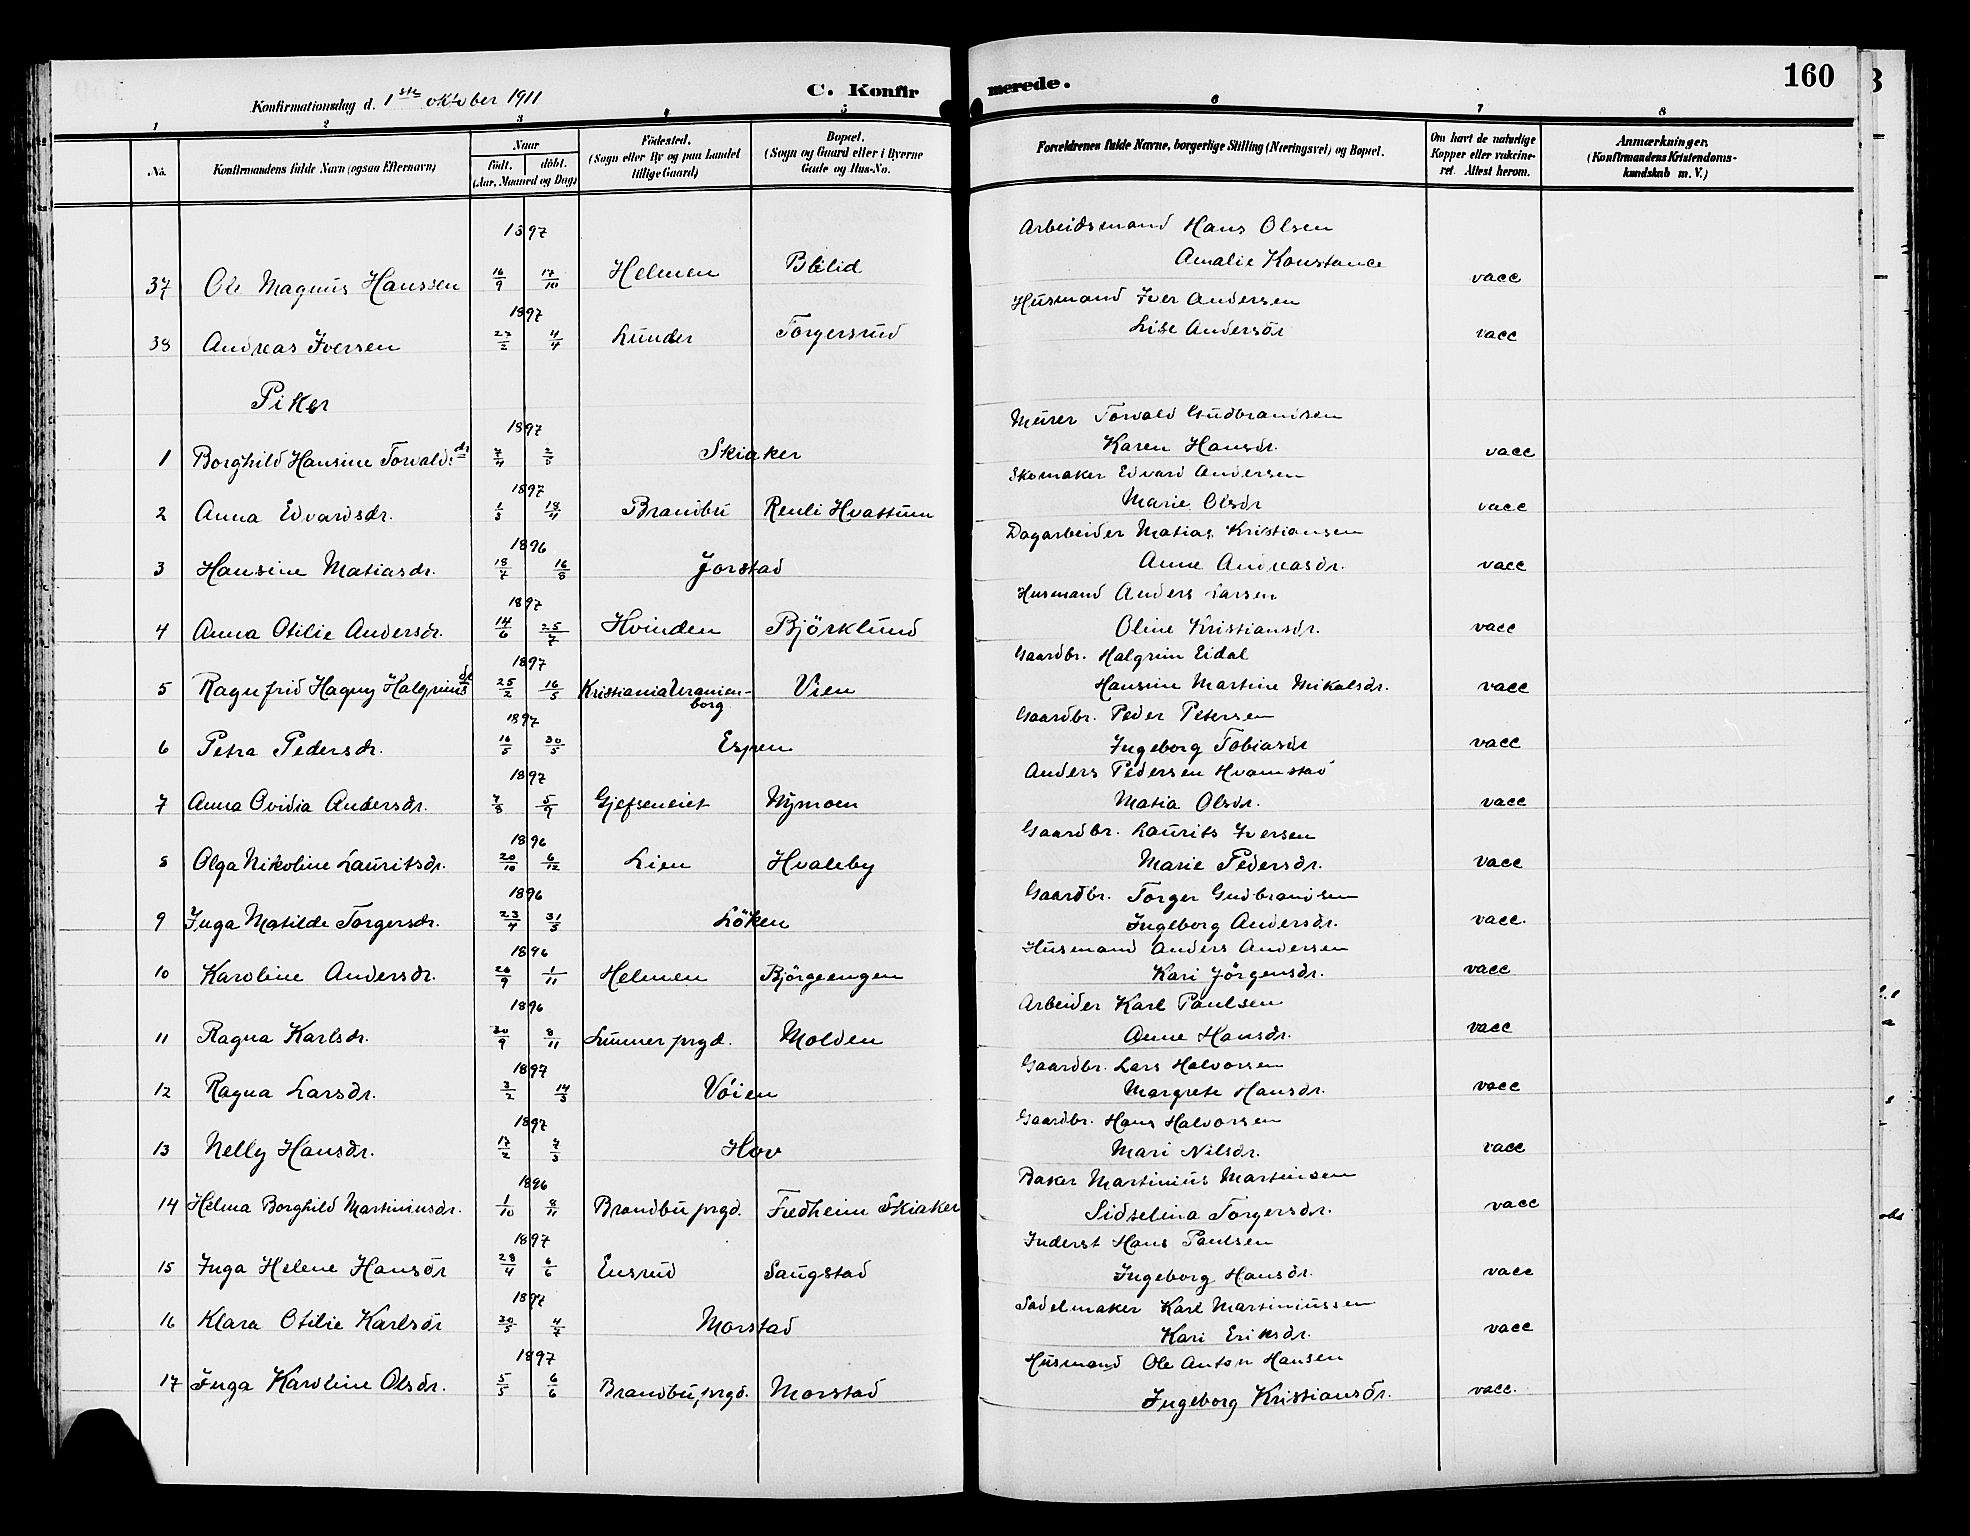 160
Konfirmationsdag d. 1ste oktober 1911
C. Konfirmerede.
1 2 3 4 5 6 7 8
No. Konfirmandens fulde Navn (ogsaa Efternavn) Naar født. døbt. (Aar, Maaned og Dag) Fødested. (Sogn eller By og paa Landet tillige Gaard) Bopæl. (Sogn og Gaard eller i Byerne Gade og Hus-No. Forældrenes fulde Navne, borgerlige Stilling (Næringsvei) og Bopæl. Om havt de naturlige Kopper eller vaccineret. Attest herom. Anmærkninger. (Konfirmandens Kristendomskundskab m. V.)
1897 Arbeidsmand Hans Olsen
37 Ole Magnus Hanssen 16/9 17/10 Helmen Blilid Amalie Konstance vacc
1897 Husmand Iver Andersen
38 Andreas Iversen 27/2 4/4 Lunder Torgersrud Lise Andersdr vacc
Piker
1897 Murer Torvald Gudbrandsen
1 Borghild Hansine Torvaldsdr 7/4 2/5 Skiaker Karen Hansdr. vacc
1897 Skomaker Edvard Andersen
2 Anna Edvardsdr. 1/3 18/4 Brandbu Renli Hvattum Marie Olsdr vacc
1896 Dagarbeider Matias Kristiansen
3 Hansine Matiasdr. 18/7 16/8 Jorstad Anne Andreasdr. vacc
1897 Husmand Anders Larsen
4 Anna Otilie Andersdr. 14/6 25/7 Hvinden Björklund Oline Kristiansdr. vacc
1897 Gaardbr. Halgrim Eidal
5 Ragnfrid Hagny Halgrimsdr 25/2 16/5 Kristiania Uranienborg Vien Hansine Martine Mikalsdr. vacc
1897 Gaardbr. Peder Petersen
6 Petra Pedersdr. 16/5 30/5 Espen Ingeborg Tobiasdr vacc
1897 Anders Pedersen Hvamstad
7 Anna Ovidia Andersdr. 7/8 5/9 Gjefseneiet Nymoen Matia Olsdr. vacc
1896 Gaardbr. Laurits Iversen
8 Olga Nikoline Lauritsdr. 20/10 6/12 Lien Hvaleby Marie Pedersdr. vacc
1896 Gaardbr. Torger Gudbrandsen
9 Inga Matilde Torgersdr. 23/4 31/5 Löken Ingeborg Andersdr. vacc.
1896 Husmand Anders Andersen
10 Karoline Andersdr. 26/9 1/11 Helmen Björgeengen Kari Jörgensdr. vacc
1896 Arbeider Karl Paulsen
11 Ragna Karlsdr. 30/9 8/11 Lunner prgd. Molden Anne Hansdr. vacc
1897 Gaardbr. Lars Halvorsen
12 Ragna Larsdr. 3/2 14/3 Vöien Margrete Hansdr. vacc
1897 Gaardbr. Hans Halvorsen
13 Nelly Hansdr. 17/2 7/3 Hov Mari Nilsdr. vacc
1896 Baker Martinius Martinsen
14 Helma Borghild Martiniusdr. 1/10 8/11 Brandbu prgd. Fredheim Skiaker Sidselina Torgersdr. vacc
1897 Inderst Hans Paulsen
15 Inga Helene Hansdr 28/4 6/6 Ensrud Saugstad Ingeborg Hansdr. vacc
1897 Sadelmaker Karl Martiniussen
16 Klara Otilie Karlsdr 30/5 4/7 Morstad Kari Eriksdr. vacc
1897 Husmand Ole Anton Hansen
17 Inga Karoline Olsdr. 5/5 6/6 Brandbu, prgd. Morstad Ingeborg Kristiansdr. vacc.